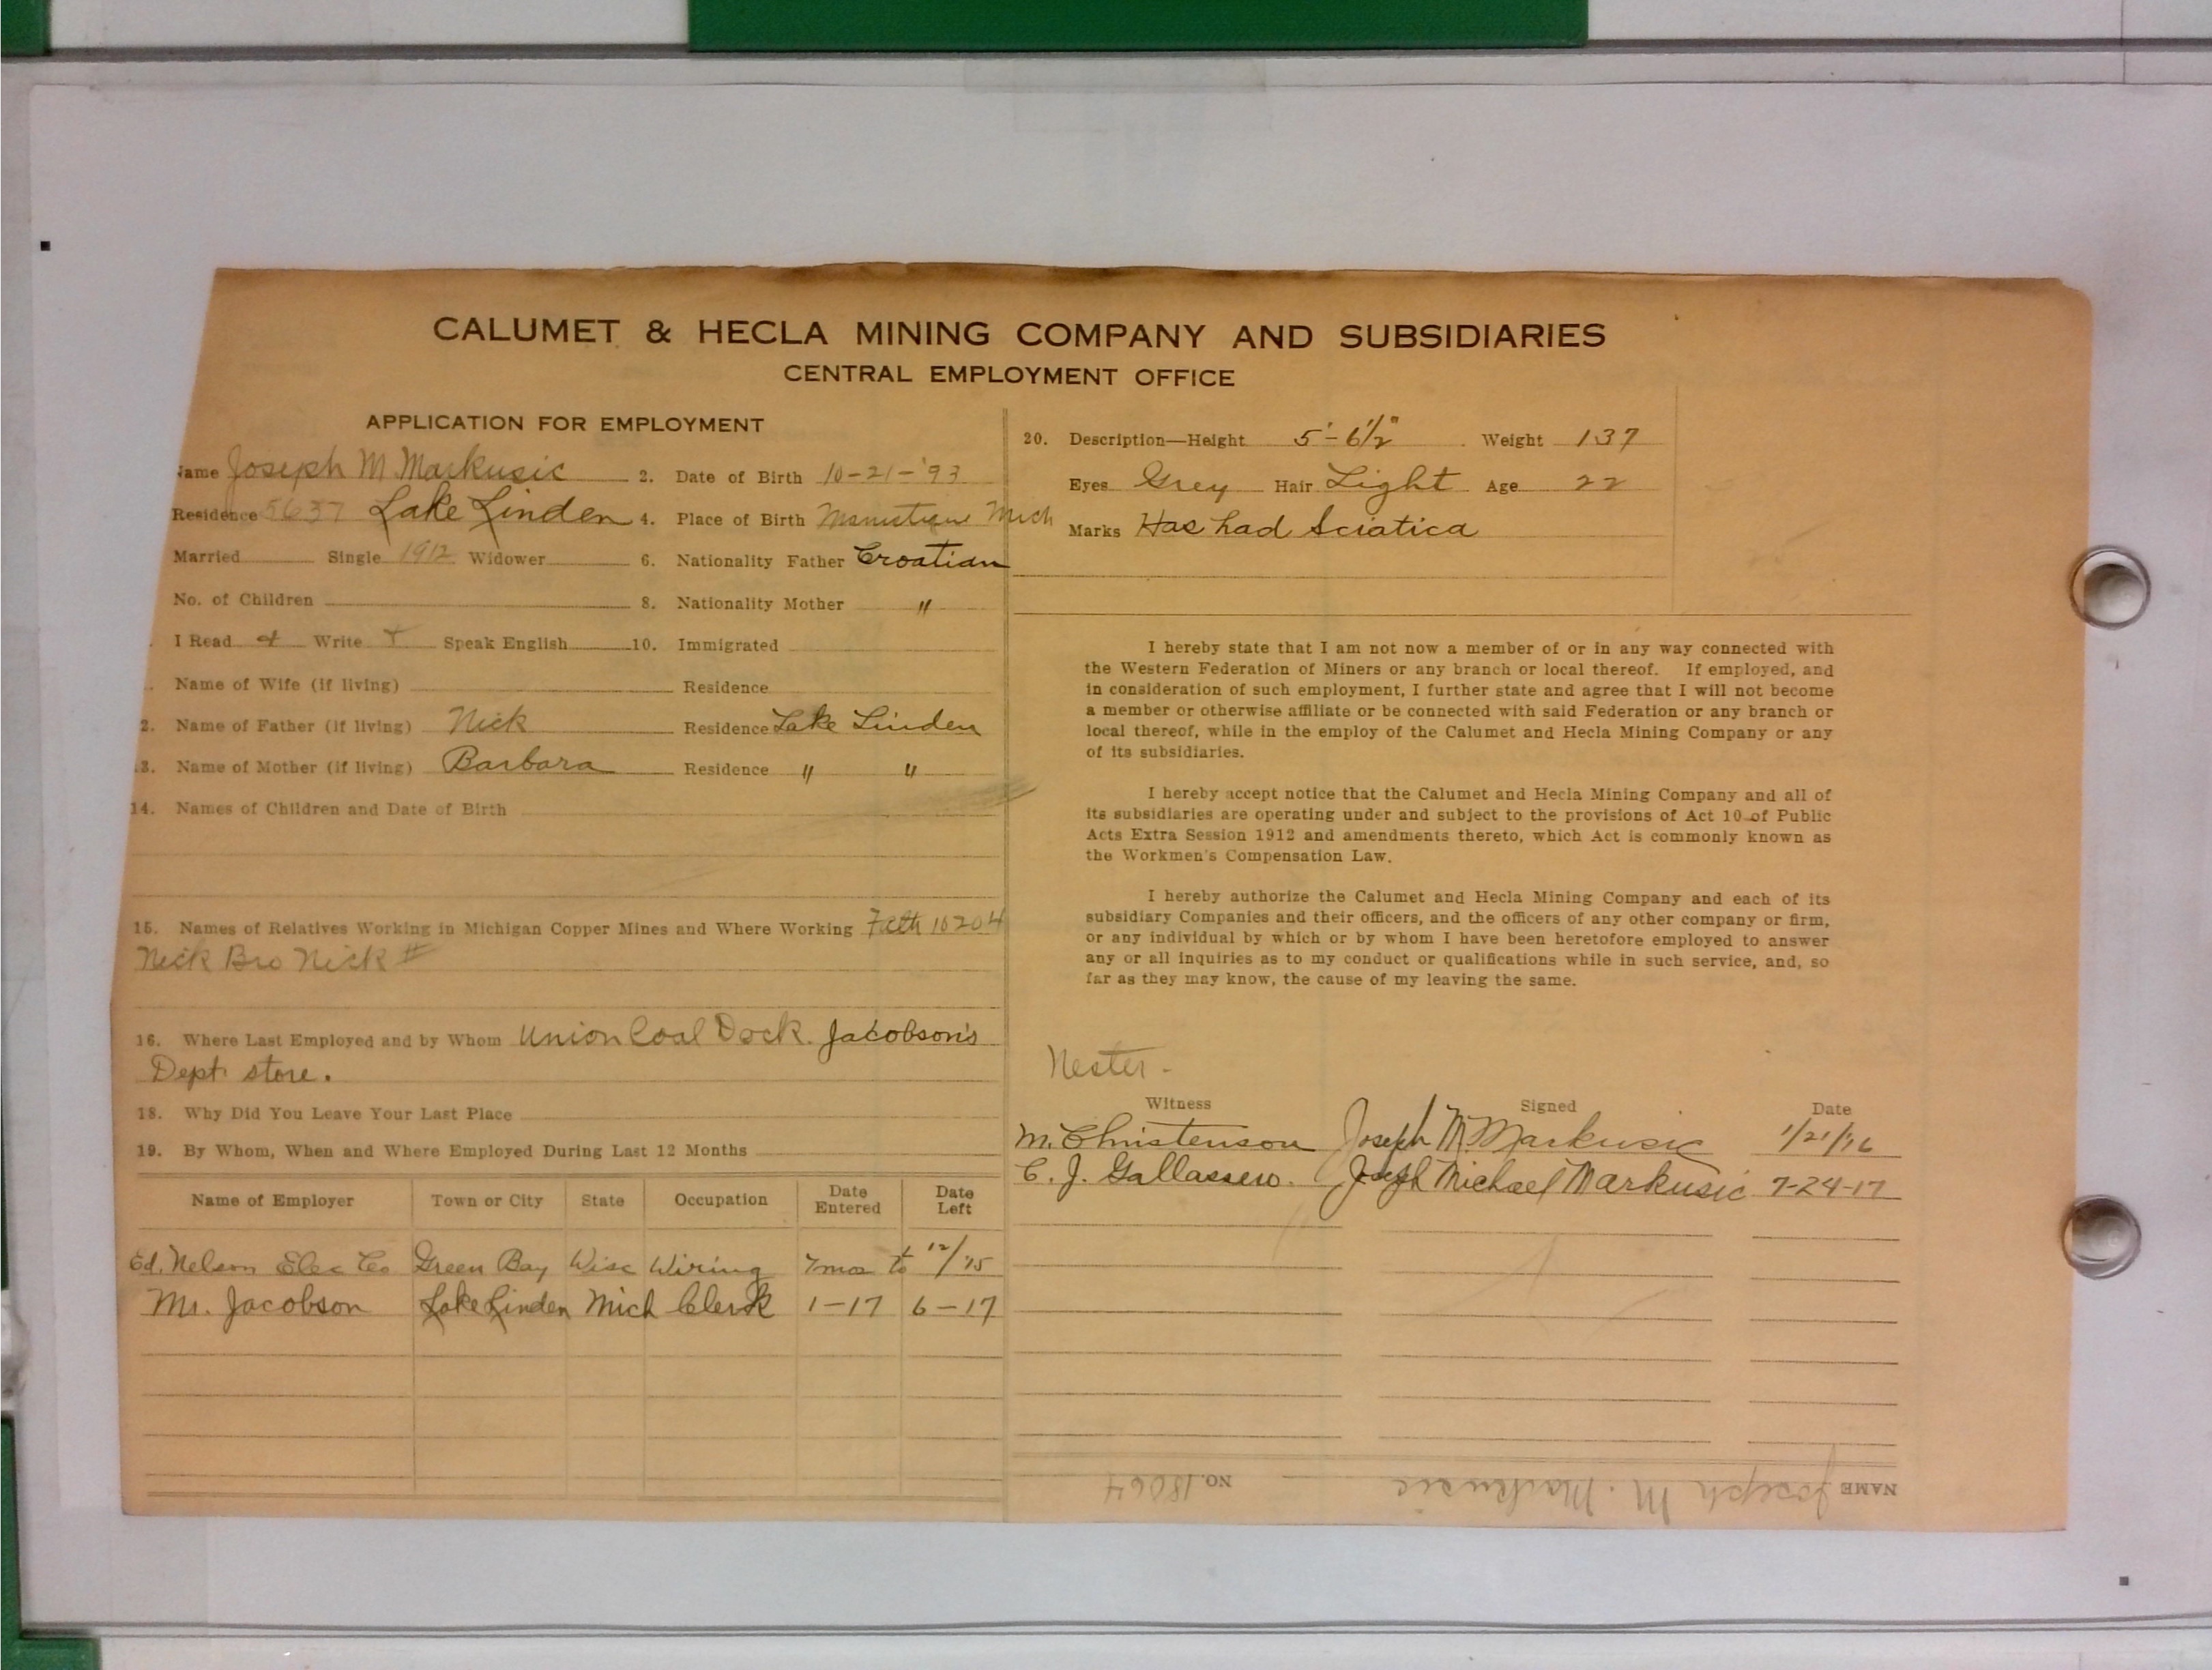 CALUMET & HECLA MINING COMPANY AND SUBSIDIARIES
CENTRAL EMPLOYMENT OFFICE
APPLICATION FOR EMPLOYMENT
Name Joseph M Markusic 2. Date of Birth 10-21-'93
Residence 5637 Lake Linden 4. Place of Birth Manistique Mich
Married Single 1912 Widower 6. Nationality Father Croatian
No. of Children 8. Nationality Mother "
I Read Write Speak English 10. Immigrated
Name of Wife (if living) Residence
2. Name of Father (if living) Nick Residence Lake Linden
3. Name of Mother (if living) Barbara Residence " "
14. Names of Children and Date of Birth
15. Names of Relatives Working in Michigan Copper Mines and Where Working Fath 10204
Nick Bro Nick #
16. Where Last Employed and by Whom Union Coal Dock. Jacobson's
Dept store.
18. Why Did You Leave Your Last Place
19. By Whom, When and Where Employed During Last 12 Months
Name of Employer Town or City State Occupation Date Entered Date Left
Ed. Nelson Elec Co Green Bay Wisc Wiring 7 mos to 12/'15
Mr. Jacobson Lake Linden Mich Clerk 1-17 6-17
20. Description—Height 5'-6 1/2" Weight 137
Eyes Grey Hair Light Age 22
Marks Has had Sciatica
I hereby state that I am not now a member of or in any way connected with
the Western Federation of Miners or any branch or local thereof. If employed, and
in consideration of such employment, I further state and agree that I will not become
a member or otherwise affiliate or be connected with said Federation or any branch or
local thereof, while in the employ of the Calumet and Hecla Mining Company or any
of its subsidiaries.
I hereby accept notice that the Calumet and Hecla Mining Company and all of
its subsidiaries are operating under and subject to the provisions of Act 10 of Public
Acts Extra Session 1912 and amendments thereto, which Act is commonly known as
the Workmen's Compensation Law.
I hereby authorize the Calumet and Hecla Mining Company and each of its
subsidiary Companies and their officers, and the officers of any other company or firm,
or any individual by which or by whom I have been heretofore employed to answer
any or all inquiries as to my conduct or qualifications while in such service, and, so
far as they may know, the cause of my leaving the same.
Nester -
Witness Signed Date
M. Christenson Joseph M. Markusic 1/21/16
C. J. Gallassero. Joseph Michael Markusic 7-24-17
NAME Joseph M. Markusic NO. 18064